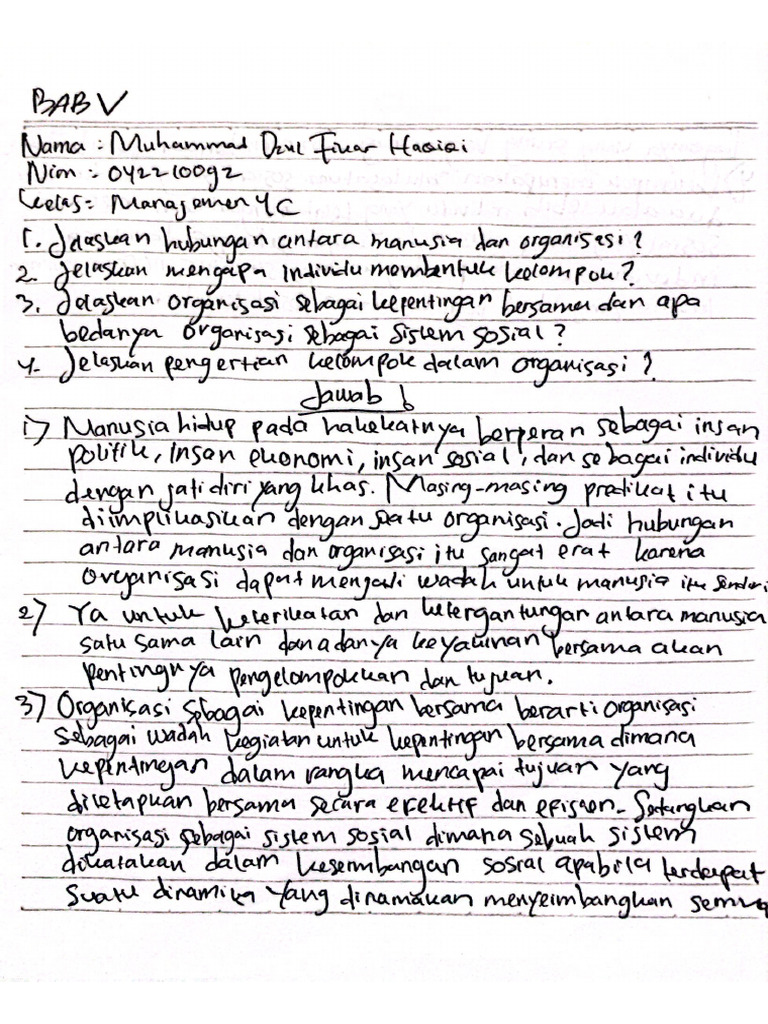 BAB V
Nama : Muhammad Dzul Fikar Haqiqi
Nim : 042210092
Kelas : Manajemen 4C
1. Jelaskan hubungan antara manusia dan organisasi?
2. Jelaskan mengapa individu membentuk kelompok?
3. Jelaskan organisasi sebagai kepentingan bersama dan apa
bedanya organisasi sebagai sistem sosial?
4. Jelaskan pengertian kelompok dalam organisasi?
Jawab
1) Manusia hidup pada hakekatnya berperan sebagai insan
politik, insan ekonomi, insan sosial, dan sebagai individu
dengan jati diri yang khas. Masing-masing predikat itu
diimplikasikan dengan suatu organisasi. Jadi hubungan
antara manusia dan organisasi itu sangat erat karena
organisasi dapat menjadi wadah untuk manusia itu sendiri
2) Ya untuk keterikatan dan ketergantungan antara manusia
satu sama lain dan adanya keyakinan bersama akan
pentingnya pengelompokkan dan tujuan.
3) Organisasi sebagai kepentingan bersama berarti organisasi
sebagai wadah kegiatan untuk kepentingan bersama dimana
kepentingan dalam rangka mencapai tujuan yang
ditetapkan bersama secara efektif dan efisien. Sedangkan
organisasi sebagai sistem sosial dimana sebuah sistem
dikatakan dalam keseimbangan sosial apabila terdapat
suatu dinamika yang dinamakan menyeimbangkan semua